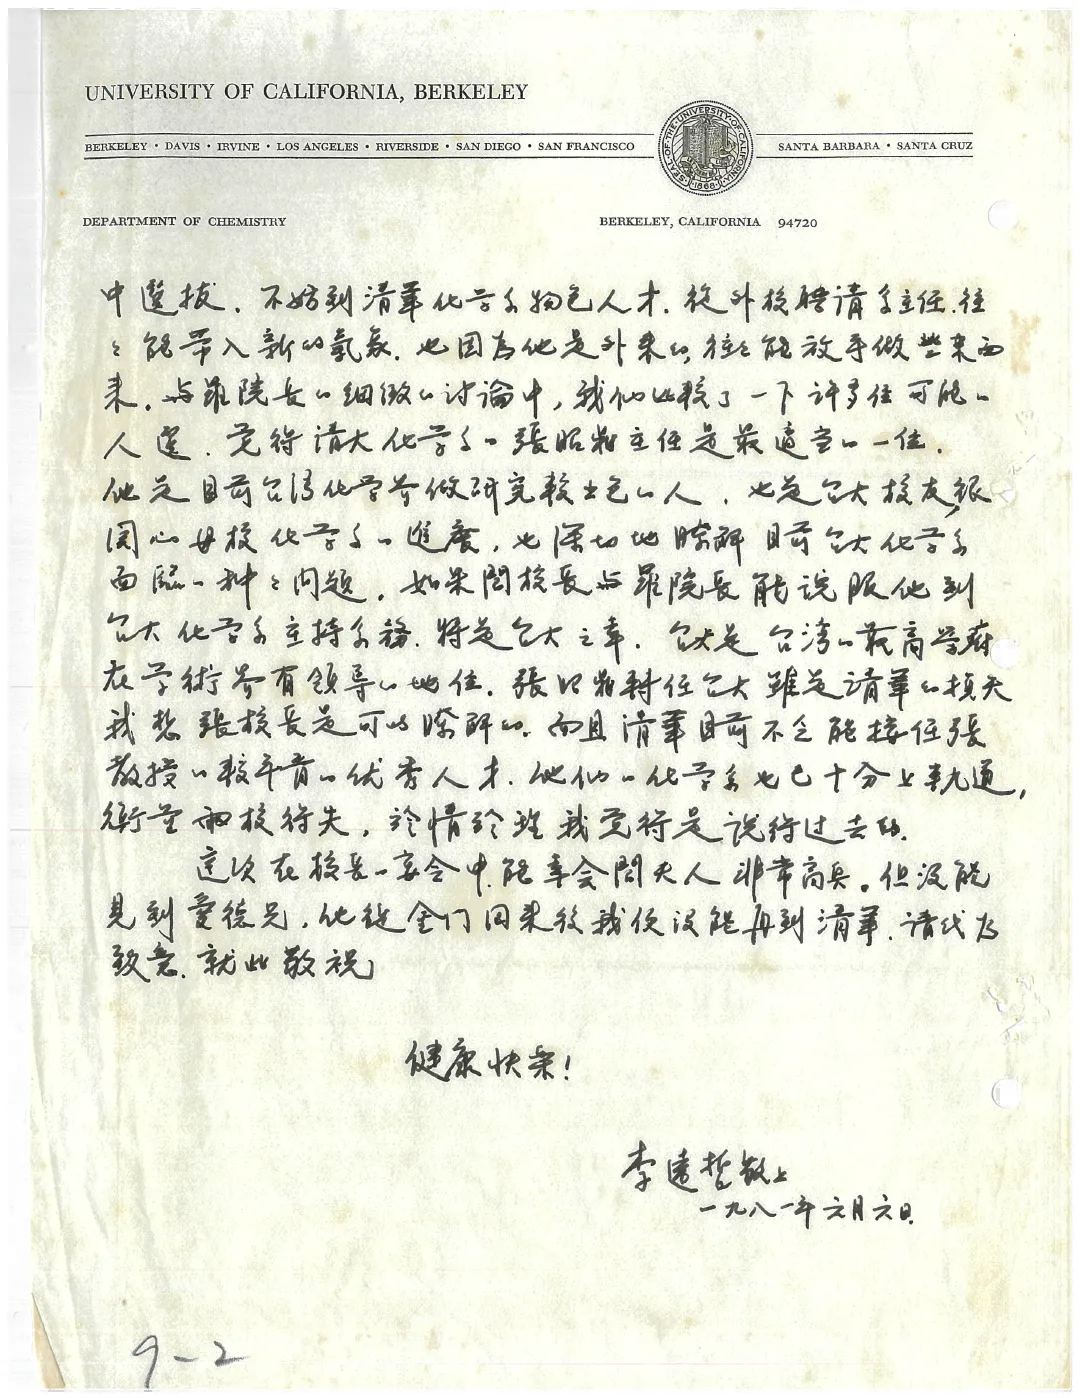 UNIVERSITY OF CALIFORNIA, BERKELEY
BERKELEY • DAVIS • IRVINE • LOS ANGELES • RIVERSIDE • SAN DIEGO • SAN FRANCISCO
SEAL OF THE UNIVERSITY OF CALIFORNIA
1868
SANTA BARBARA • SANTA CRUZ
DEPARTMENT OF CHEMISTRY
BERKELEY, CALIFORNIA 94720
中選拔. 不妨到清華化学系物色人才. 從外校聘請系主任.往
々能帶入新的氣象. 也因為他是外来的, 往々能放手做些東西
来. 与羅院長的細緻的討論中, 我们比較了一下許多位可能的
人選. 覚得清大化学系的張昭鼎主任是最適当的一位.
他是目前台湾化学界做研究較出色的人. 也是台大校友,很
関心母校化学系的進度, 也深切地瞭解目前台大化学系
面臨的種々问題. 如果閻校長与羅院長能说服他到
台大化学系主持系務. 將是台大之幸. 台大是台湾的最高学府
在学術界有領导的地位. 張昭鼎轉任台大雖是清華的損失
我想張校長是可以瞭解的. 而且清華目前不乏能接任張
教授的較年青的优秀人才. 他们的化学系也已十分上軌道,
衡量両校得失, 於情於理我覚得是说得过去的.
這次在校長的宴会中, 能幸会閻夫人非常高兴. 但没能
見到愛德兄, 他從金门回来後我便没能再到清華. 请代为
致意. 就此敬祝
健康快楽!
李遠哲敬上
一九八一年六月六日
9-2